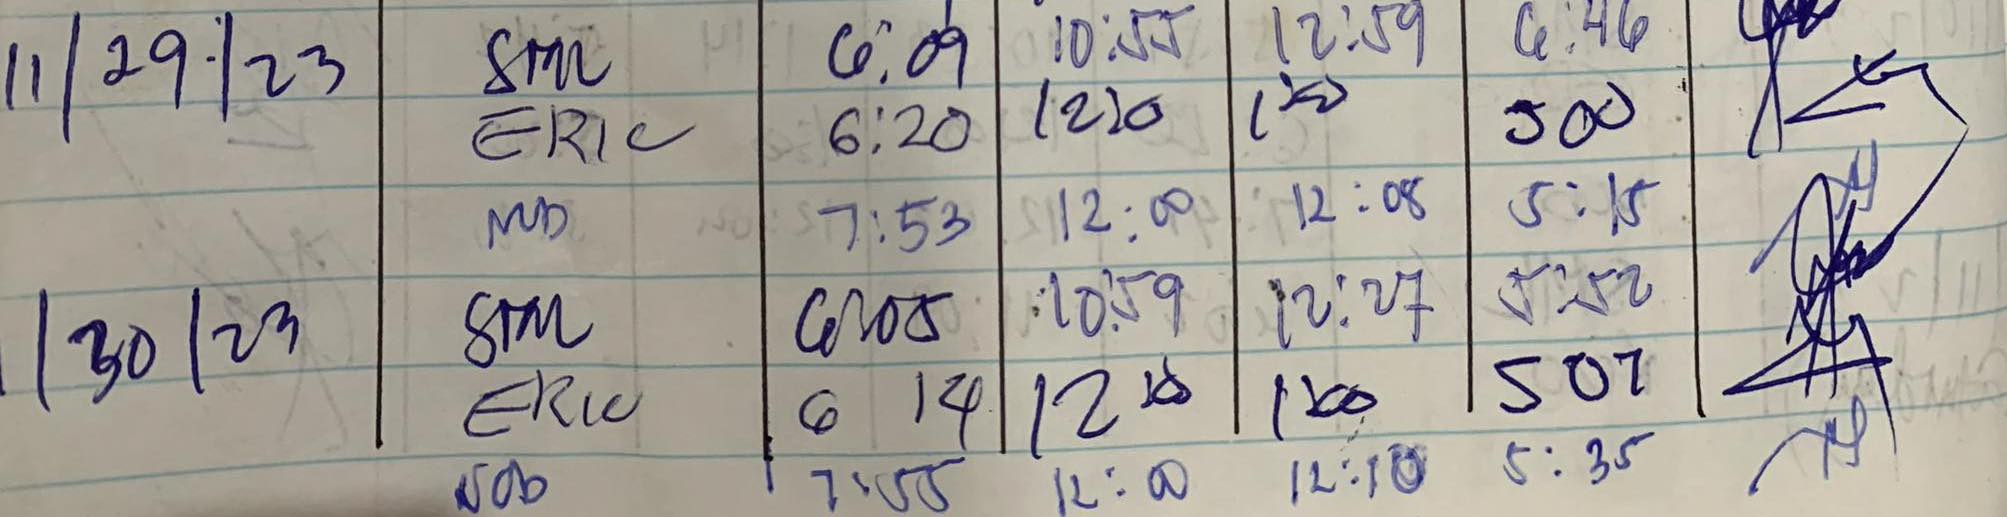 11/29/23 STM 6:09 10:55 12:59 6:46
ERIC 6:20 1220 100 500
7:53 12:00 12:08 5:15
/30/23 STM 6:05 10:59 12:27 5:52
ERIC 6 14 12 100 507
7:55 12:00 12:10 5:35